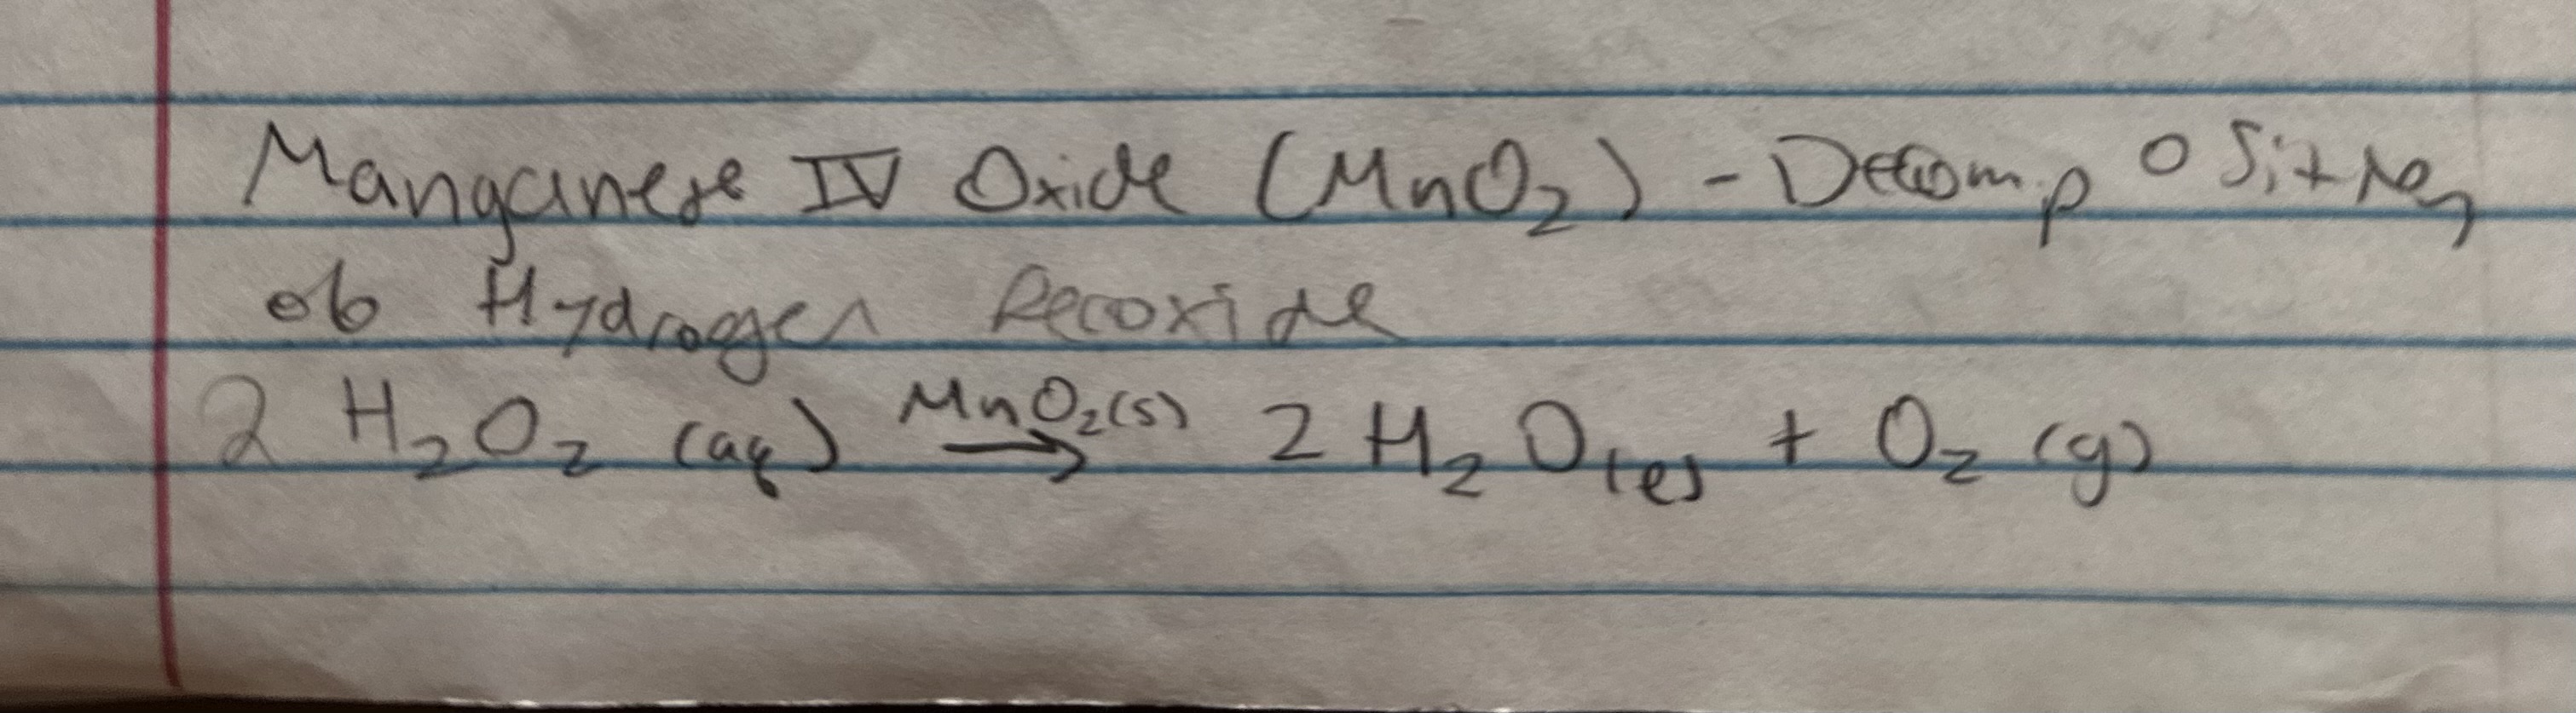 Manganese IV Oxide (MnO₂) - Decomposition
of Hydrogen Peroxide
2 H₂O₂ (aq) MnO₂(s) → 2 H₂O(l) + O₂ (g)